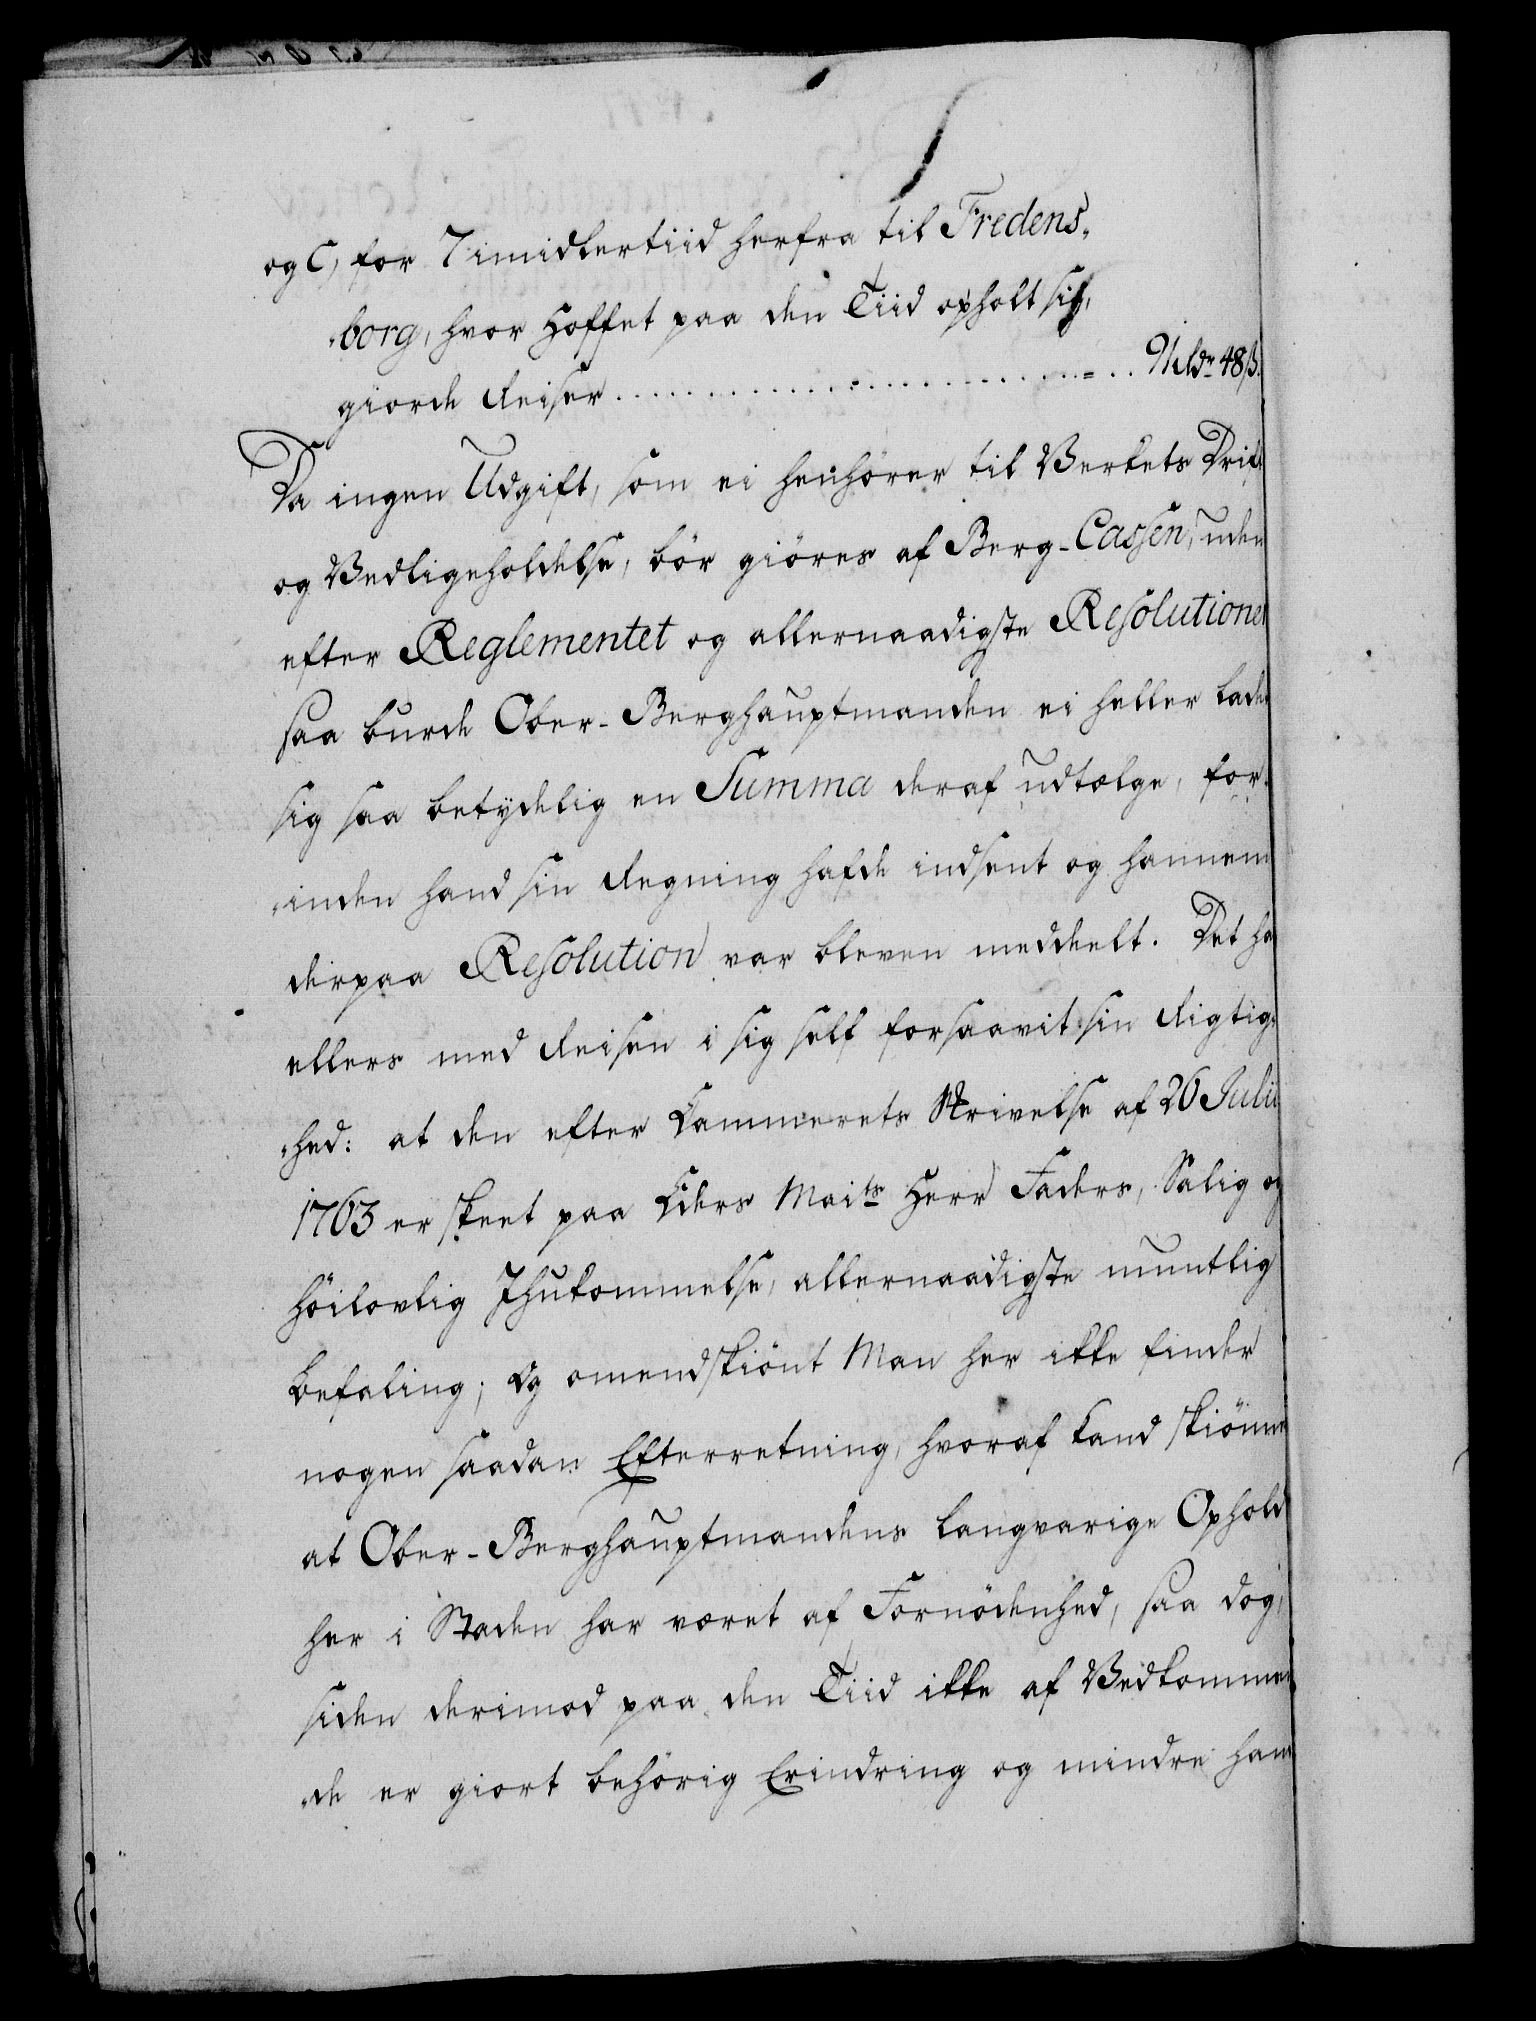 og C, for 7 imidlertiid herfra til Fredens„
„borg, hvor Hoffet paa den Tiid opholt sig,
giorde Reiser . . . . . . . . . . . . . . . . . . . . . . 48 ß.
Da ingen Udgift, som ei henhörer til Verkets Drift
og Vedligeholdelse, bör giöres af Berg-Cassen, uden
efter Reglementet og allernaadigste Resolutioner
saa burde Ober-Berghauptmanden ei heller lade
sig saa betydelig en Summa deraf udtælge, for„
„inden hand sin Regning hafde indsent og hannem
derpaa Resolution var bleven meddeelt. Det ha
ellers med Reisen i sig self forsaavit sin Rigtig„
„hed: at den efter Cammerets Skrivelse af 26 Julii
1763 er skeet paa Eders Maits Herr Faders, Salig og
Höilovlig Ihukommelse, allernaadigste muntlig
Befaling; Og omendskiönt Man her ikke finder
nogen saadan Efterretning, hvoraf kand skiönne
at Ober-Berghauptmandens langvarige Ophold
her i Staden har været af Fornödenhed, saa dog,
siden derimod paa den Tiid ikke af Vedkommen
„de er giort behörig Erindring og mindre ham